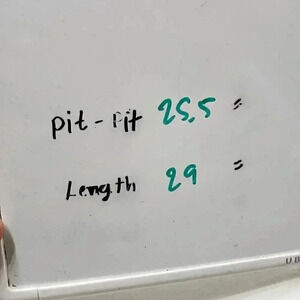 pit-pit 25.5 "
Length 29 "